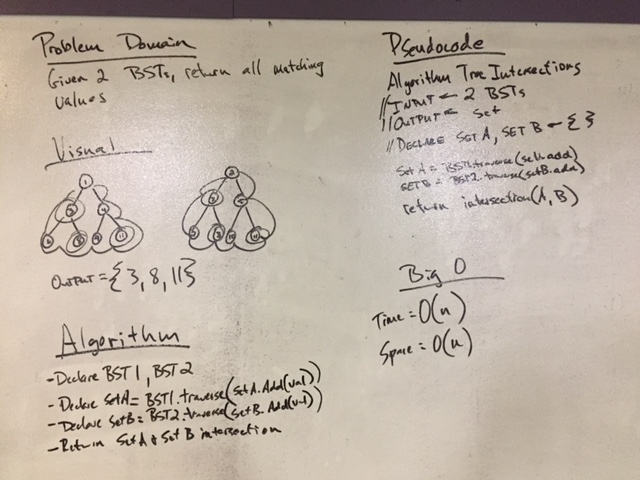 Problem Domain
Given 2 BSTs, return all matching
values
Visual
OUTPUT = {3, 8, 11}
Algorithm
- Declare BST1, BST2
- Declare SetA = BST1.traverse(SetA.Add(val))
- Declare SetB = BST2.traverse(SetB.Add(val))
- Return SetA & Set B intersection
Pseudocode
Algorithm Tree Intersections
//INPUT ← 2 BSTs
//OUTPUT ← Set
//DECLARE SET A, SET B ← { }
Set A = BST1.traverse(setA.add)
SET B = BST2.traverse(setB.add)
return intersection(A, B)
Big O
Time = O(n)
Space = O(n)